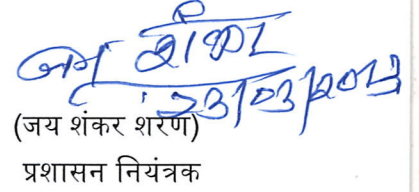 जय शंकर
23/03/2013
(जय शंकर शरण)
प्रशासन नियंत्रक